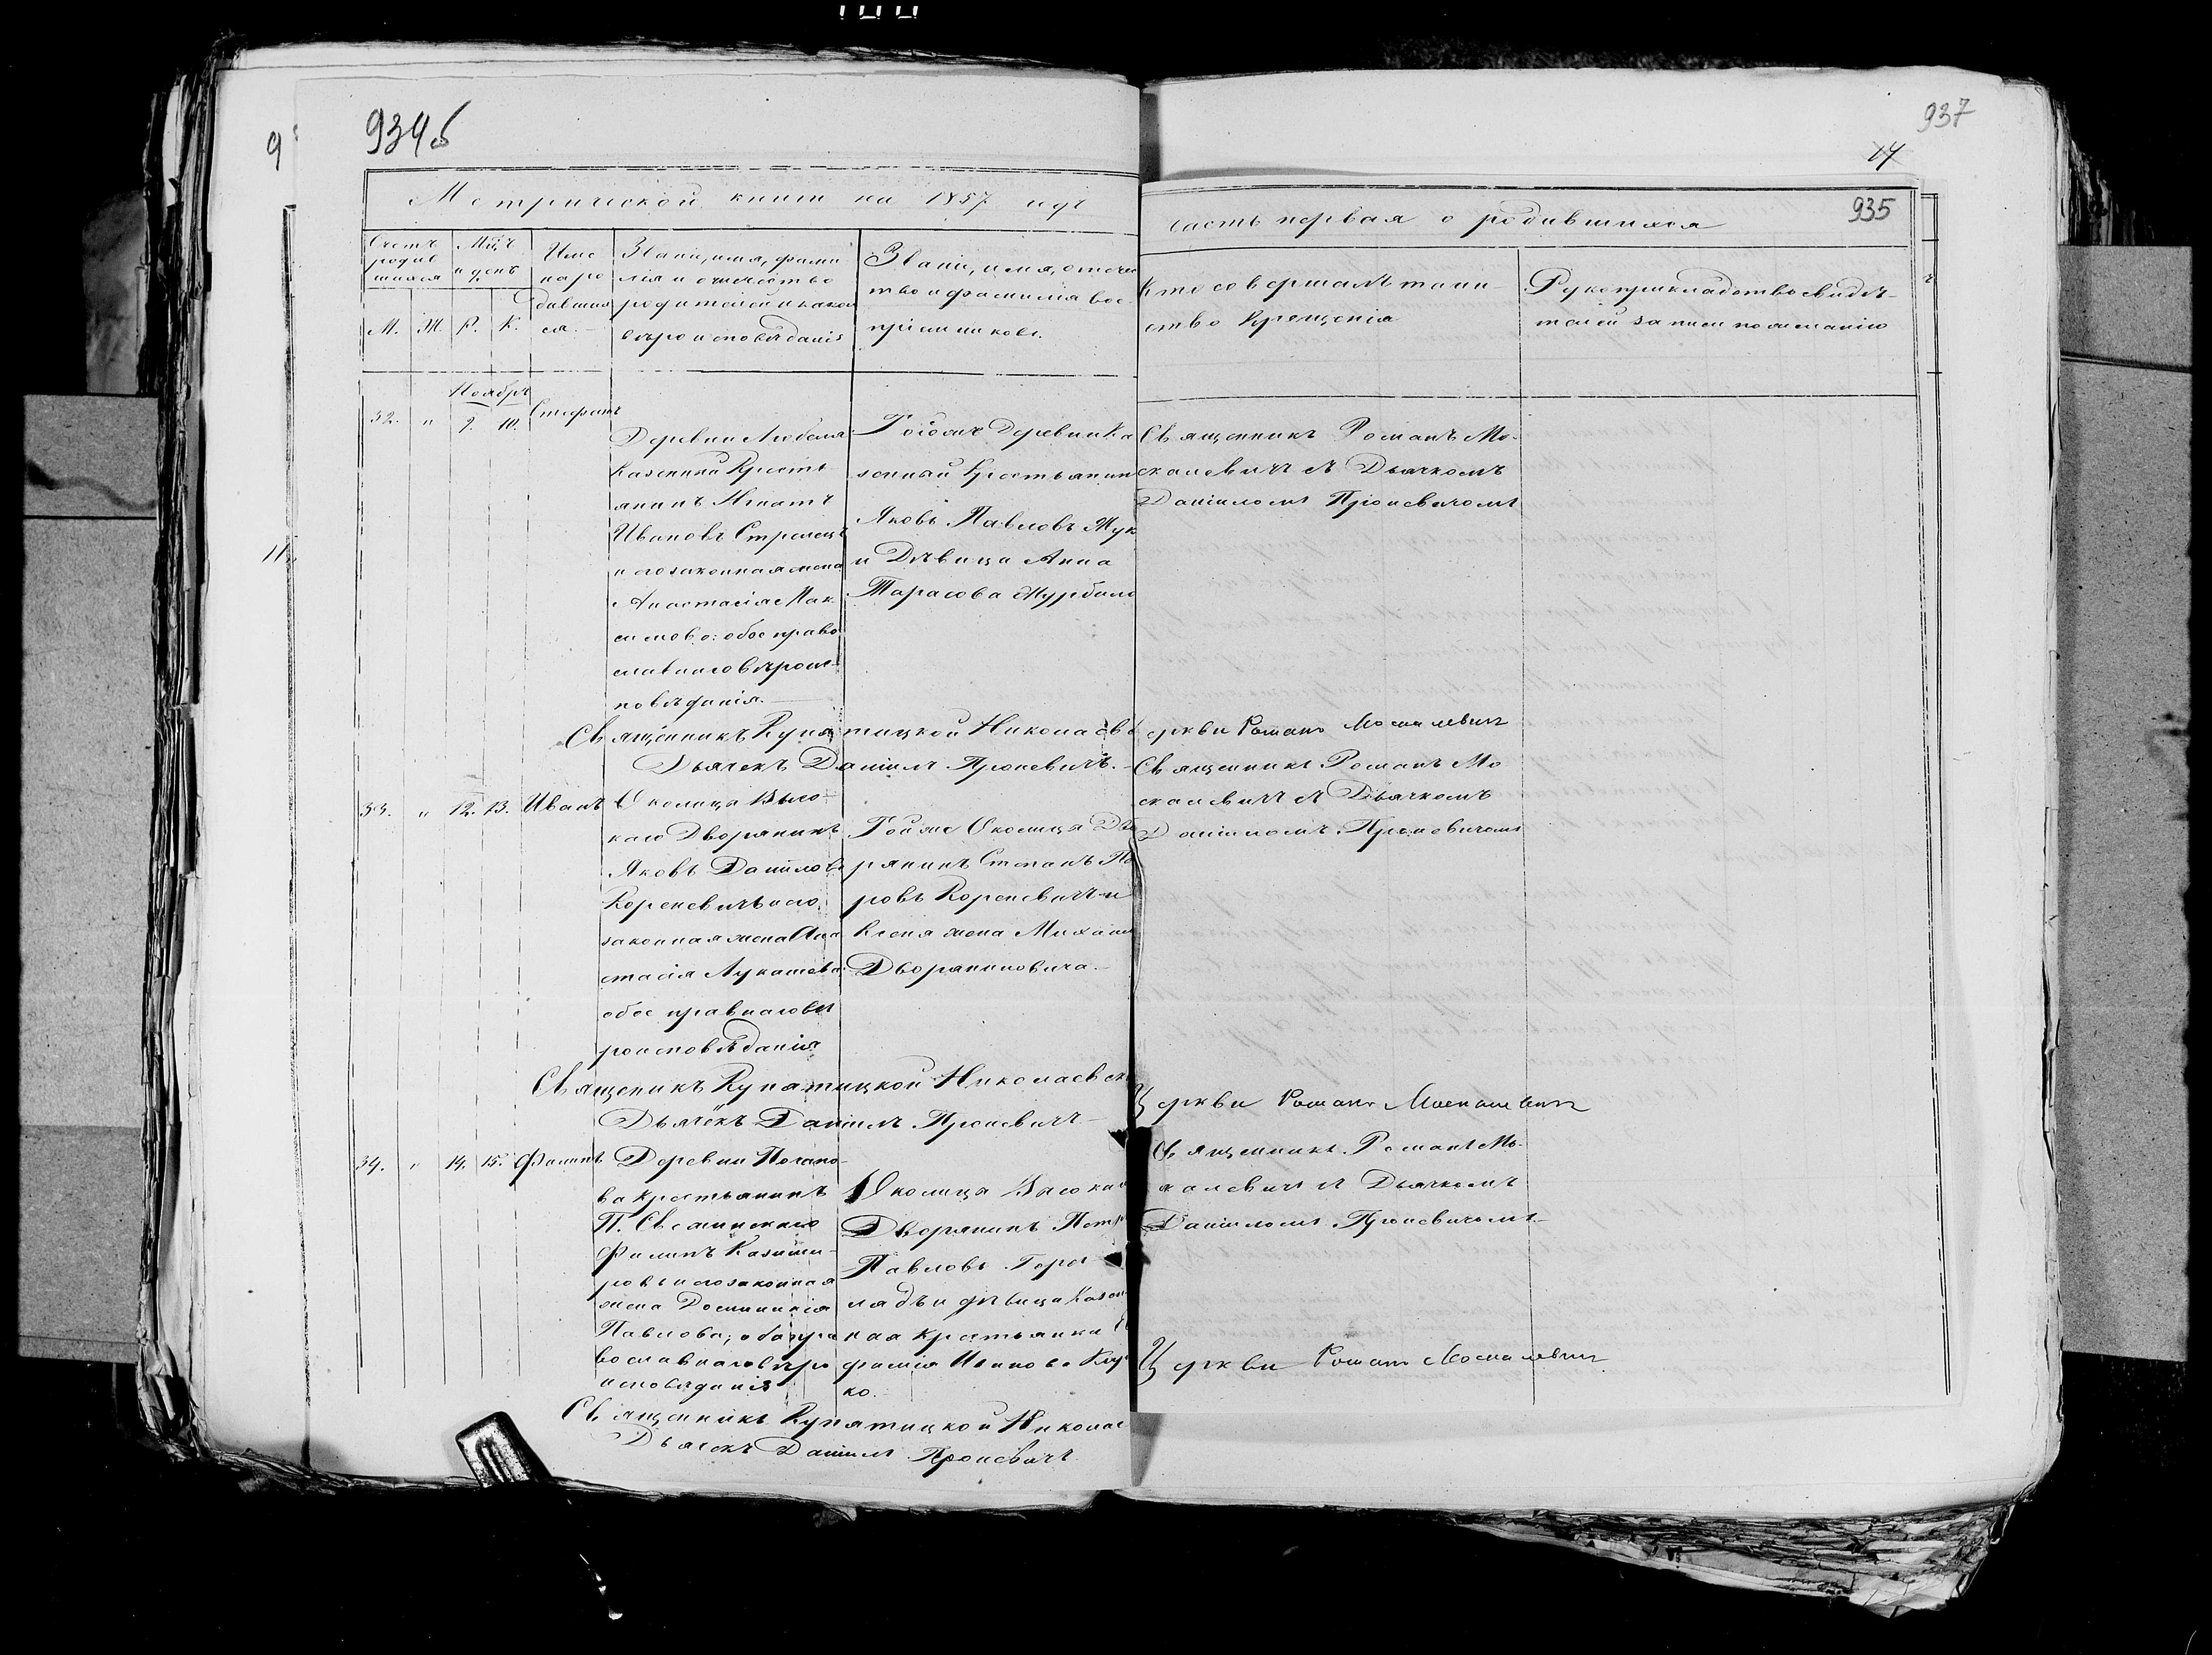 934б
937
14
935
Метрической книги на 1857 годъ
часть первая о родившихся
Счетъ родив шихся
М. Ж.
Мцъ и день
Р. К.
Име наро дившихся.
Званіе, имя, фами
лія и отчество
родителей и какого
вѣроисповѣданія
Званіе, имя, отечес
тво и фамилія вос
пріемниковъ.
Кто совершалъ таин-
ство крещенія
Рукоприкладство свидѣ-
телей записи по желанію
Ноябрь
32. " 9. 10. Стефанъ
Деревни
Казенный Кресть
янинъ Игнатъ
Ивановъ Стрелецъ
и его законная жена
Анастасія Мак-
симова: обое право
славнаго вѣроис-
повѣданія.
Тойже Деревни Ка
зенный Крестьянинъ
Яковъ Павловъ Жук
и Дѣвица Анна
Тарасова
Священникъ Романъ Мо-
скалевичъ съ Дьячкомъ
Даніиломъ Проневичомъ
Священникъ Купятицкой Николаев
Церкви Романъ Москалевич
Дьячекъ Даніилъ Проневичъ.
33. " 12. 13. Иванъ
Околица Высо-
каго Дворянинъ
Яковъ Даніиловъ
Кореневичъ и его
законная жена Ана
стасія Лукашева
обое правнаго вѣ
роисповѣданія
Тойже Околицы Дво
рянинъ Степанъ
ровъ Кореневичъ и
Ксеня жена Михаи
Дворяниновича.
Священникъ Романъ Мо
скалевичъ съ Дьячкомъ
Даніиломъ Проневичомъ
Священикъ Купятицкой Николаевск
Церкви Романъ Москалевич
Дьячекъ Даніилъ Проневичъ
34. " 14. 15. Филипъ
Деревни
ва крестьянинъ
П.
Филипъ Казими-
ровъ и его законная
жена Доминикія
Павлова; оба пра
вославнаго вѣро
исповѣданія
Околица Высока
Дворянинъ Петр
Павловъ
и дѣвица Казен
ная крестьянка
фимія Иванова
ко.
Священникъ Романъ Мо-
скалевичъ съ Дьячкомъ
Даніиломъ Проневичомъ
Священникъ Купятицкой Николае
Церкви Романъ Москалевич
Дьячекъ Даніилъ Проневичъ